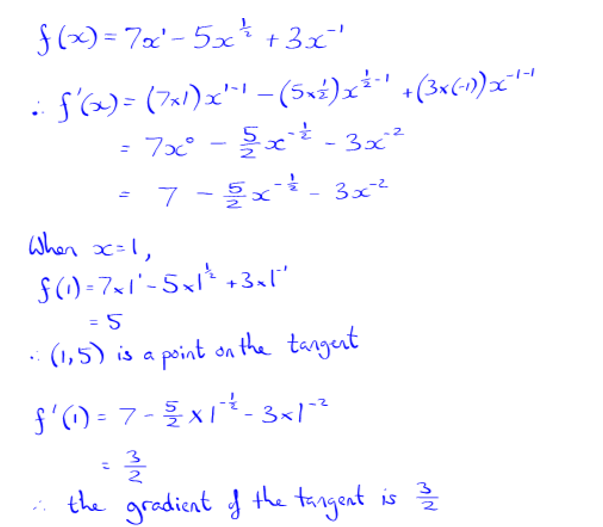 f(x) = 7x¹ - 5x^½ + 3x⁻¹
∴ f'(x) = (7×1)x^(1-1) - (5×½)x^(½-1) + (3×(-1))x^(-1-1)
= 7x⁰ - 5/2 x^(-½) - 3x⁻²
= 7 - 5/2 x^(-½) - 3x⁻²
When x=1,
f(1) = 7×1¹ - 5×1^½ + 3×1⁻¹
= 5
∴ (1,5) is a point on the tangent
f'(1) = 7 - 5/2 × 1^(-½) - 3×1⁻²
= 3/2
∴ the gradient of the tangent is 3/2